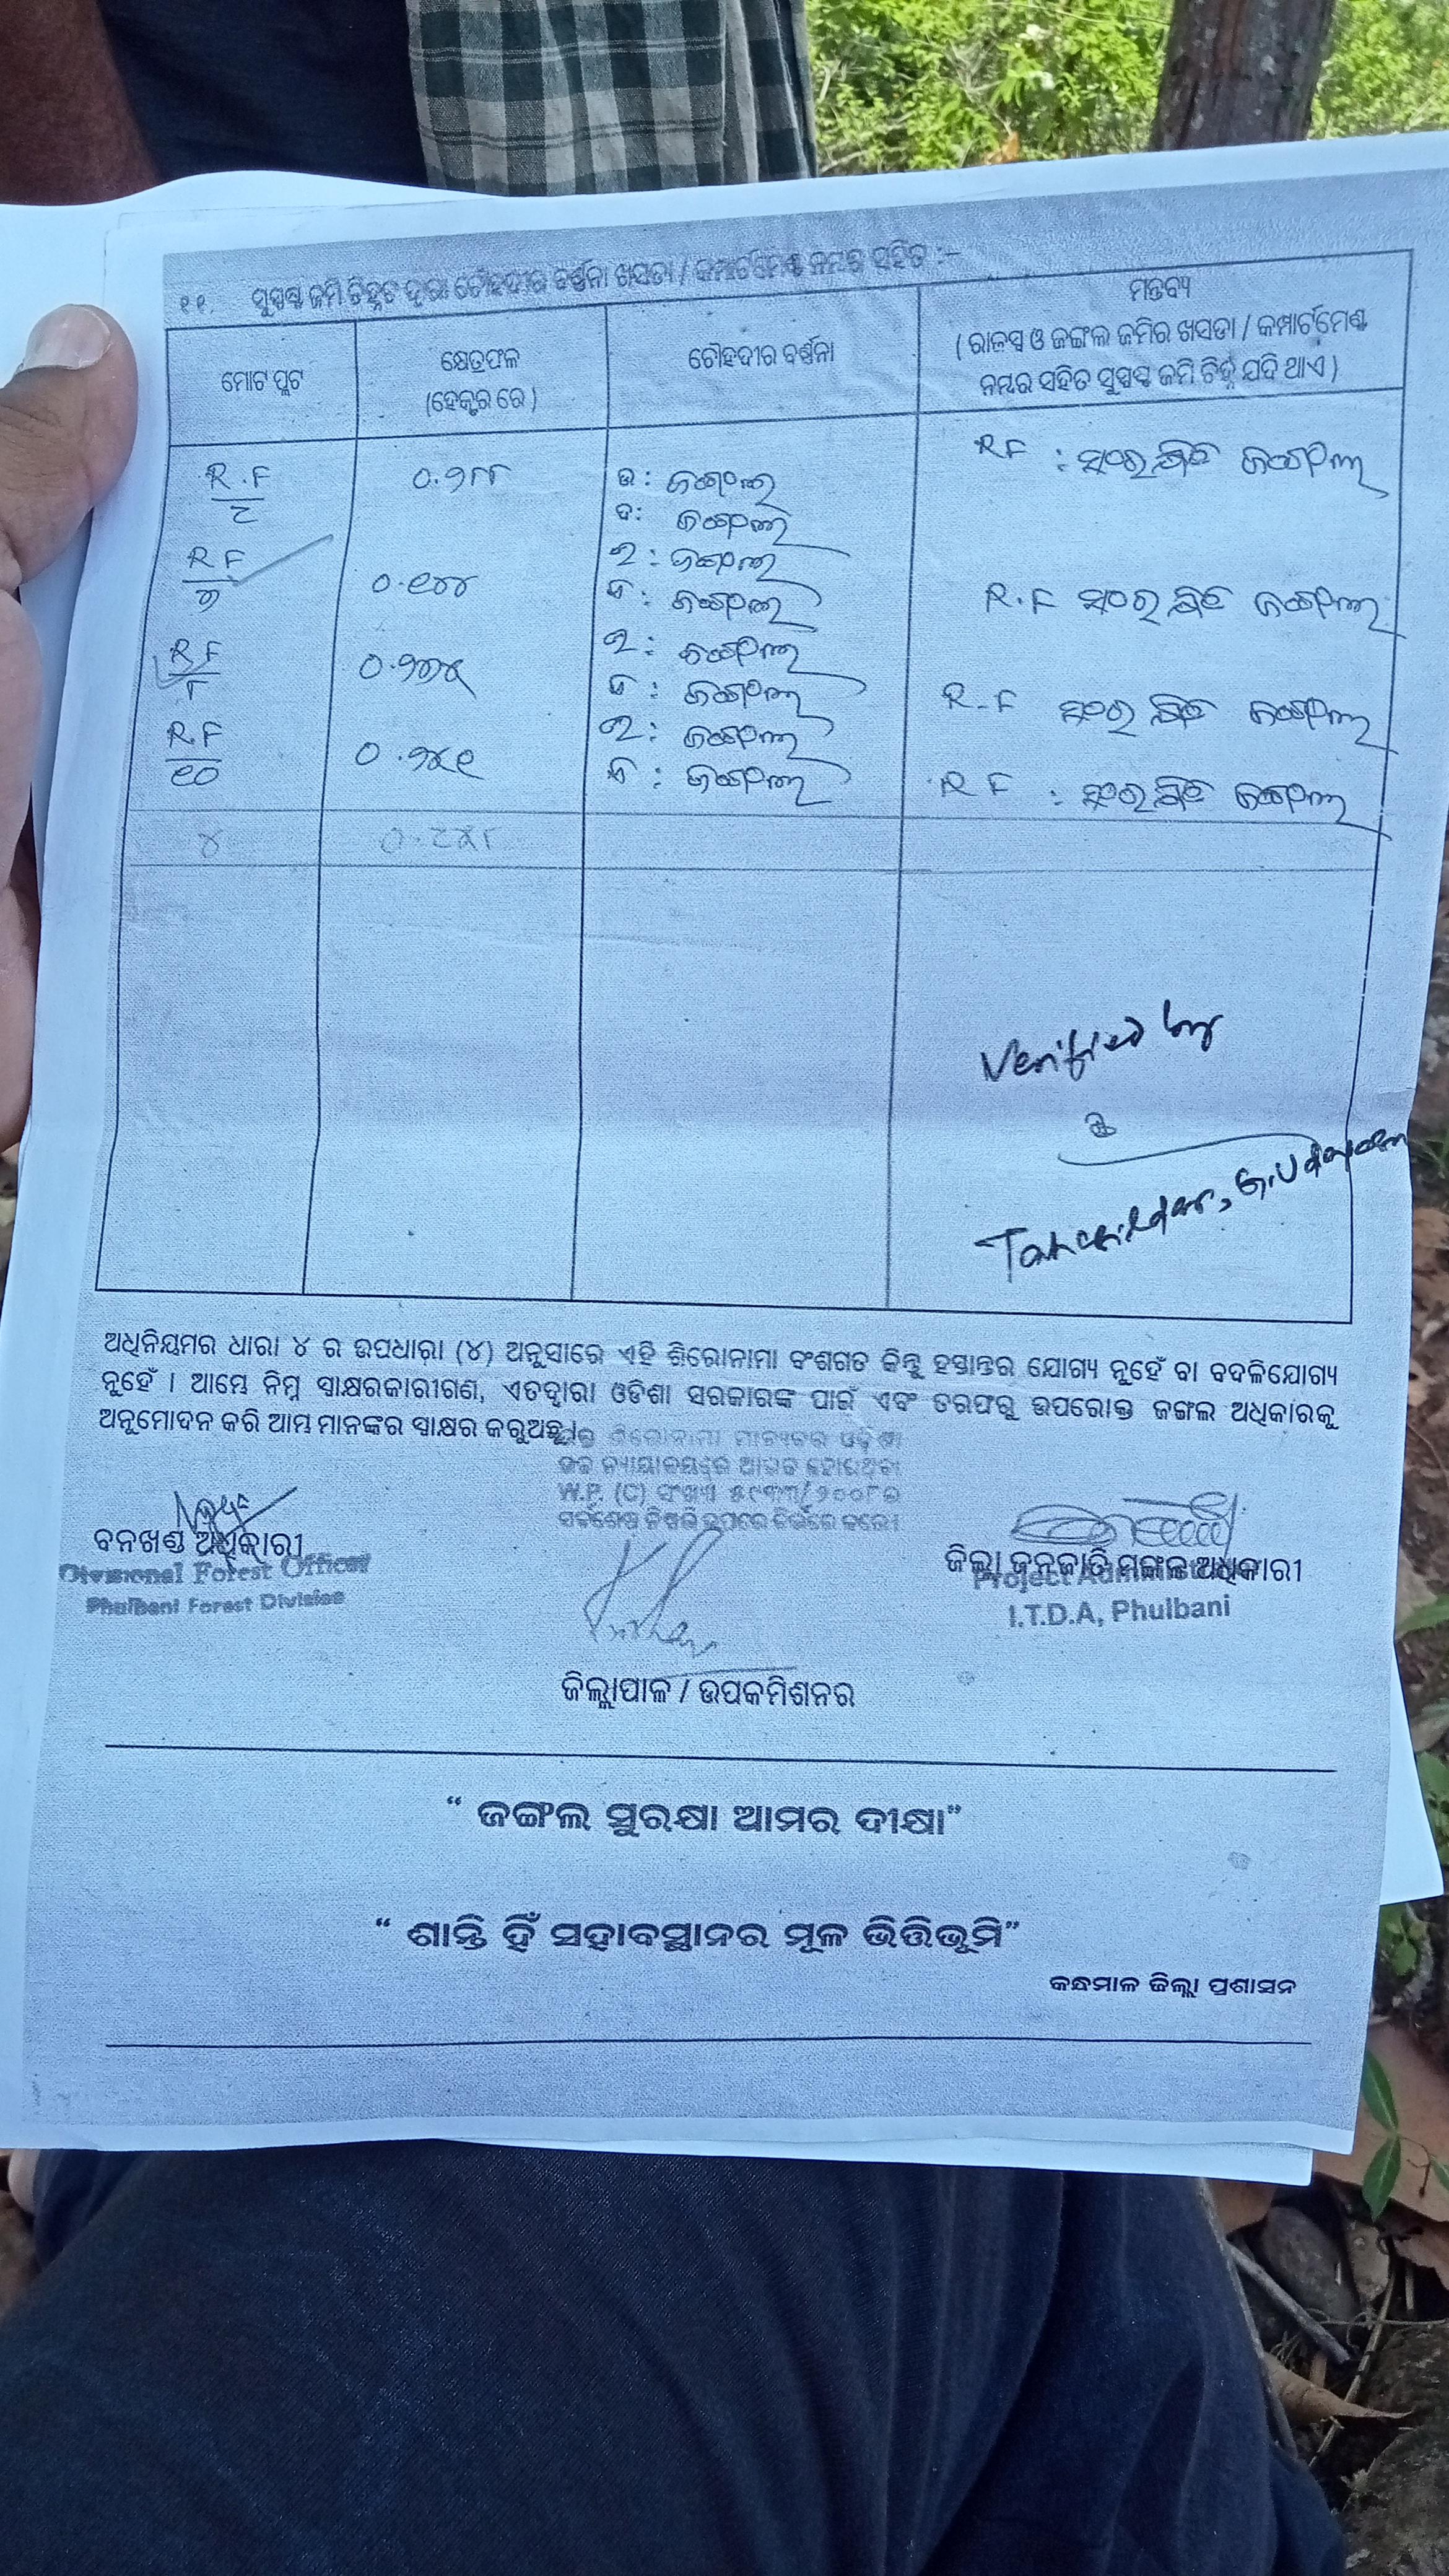 ୧୧. ସୁସ୍ପଷ୍ଟ ଜମି ଚିହ୍ନଟ ଦ୍ୱାରା ଚୌହଦୀର ବର୍ଣ୍ଣନା ଖସଡା / କମ୍ପାର୍ଟମେଣ୍ଟ ନମ୍ବର ସହିତ :-
ମୋଟ ପ୍ଲଟ
କ୍ଷେତ୍ରଫଳ
(ହେକ୍ଟର ରେ)
ଚୌହଦୀର ବର୍ଣ୍ଣନା
ମନ୍ତବ୍ୟ
( ରାଜସ୍ୱ ଓ ଜଙ୍ଗଲ ଜମିର ଖସଡା / କମ୍ପାର୍ଟମେଣ୍ଟ
ନମ୍ବର ସହିତ ସୁସ୍ପଷ୍ଟ ଜମି ଚିହ୍ନ ଯଦି ଥାଏ )
R.F ୦.୨୮୮ ଉ: ଜଙ୍ଗଲ RF : ସଂରକ୍ଷିତ ଜଙ୍ଗଲ
ଦ: ଜଙ୍ଗଲ
RF ୦.୧୪୪ ଜଙ୍ଗଲ R.F ସଂରକ୍ଷିତ ଜଙ୍ଗଲ
ଜଙ୍ଗଲ
RF ଜଙ୍ଗଲ R-F ସଂରକ୍ଷିତ ଜଙ୍ଗଲ
୮ ଜଙ୍ଗଲ
R.F ଜଙ୍ଗଲ RF : ସଂରକ୍ଷିତ ଜଙ୍ଗଲ
୧୦ ଜଙ୍ଗଲ
୪
Verified by
Tahasildar, G.Udayagiri
ଅଧିନିୟମର ଧାରା ୪ ର ଉପଧାରା (୪) ଅନୁସାରେ ଏହି ଶିରୋନାମା ବଂଶଗତ କିନ୍ତୁ ହସ୍ତାନ୍ତର ଯୋଗ୍ୟ ନୁହେଁ ବା ବଦଳିଯୋଗ୍ୟ
ନୁହେଁ । ଆମ୍ଭେ ନିମ୍ନ ସ୍ୱାକ୍ଷରକାରୀଗଣ, ଏତଦ୍ୱାରା ଓଡିଶା ସରକାରଙ୍କ ପାଇଁ ଏବଂ ତରଫରୁ ଉପରୋକ୍ତ ଜଙ୍ଗଲ ଅଧିକାରକୁ
ଅନୁମୋଦନ କରି ଆମ୍ଭ ମାନଙ୍କର ସ୍ୱାକ୍ଷର କରୁଅଛୁ ।
ଶିରୋନାମା ମାନ୍ୟବର ଓଡ଼ିଶା
W.P. (C) ସଂଖ୍ୟା
ବନଖଣ୍ଡ ଅଧିକାରୀ
Divisional Forest Officer
Phulbani Forest Division
ଜିଲ୍ଲା ଜନଜାତି ମଙ୍ଗଳ ଅଧିକାରୀ
Project Administrator
I.T.D.A, Phulbani
ଜିଲ୍ଲାପାଳ / ଉପକମିଶନର
“ ଜଙ୍ଗଲ ସୁରକ୍ଷା ଆମର ଦୀକ୍ଷା”
“ ଶାନ୍ତି ହିଁ ସହାବସ୍ଥାନର ମୂଳ ଭିତ୍ତିଭୂମି”
କନ୍ଧମାଳ ଜିଲ୍ଲା ପ୍ରଶାସନ